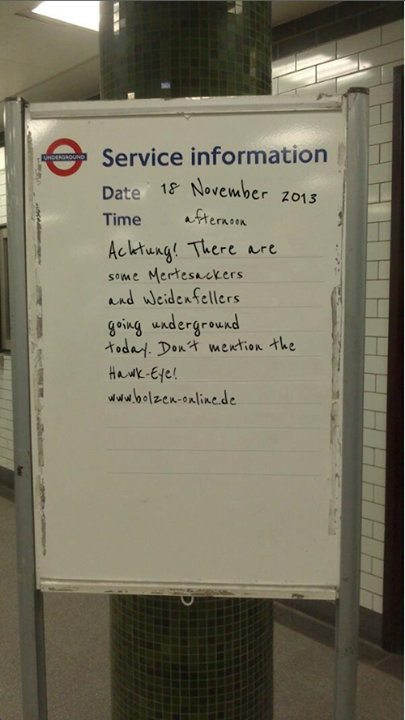 UNDERGROUND
Service information
Date 18 November 2013
Time afternoon
Achtung! There are
some Mertesackers
and Weidenfellers
going underground
today. Don't mention the
Hawk-Eye!
www.bolzen-online.de